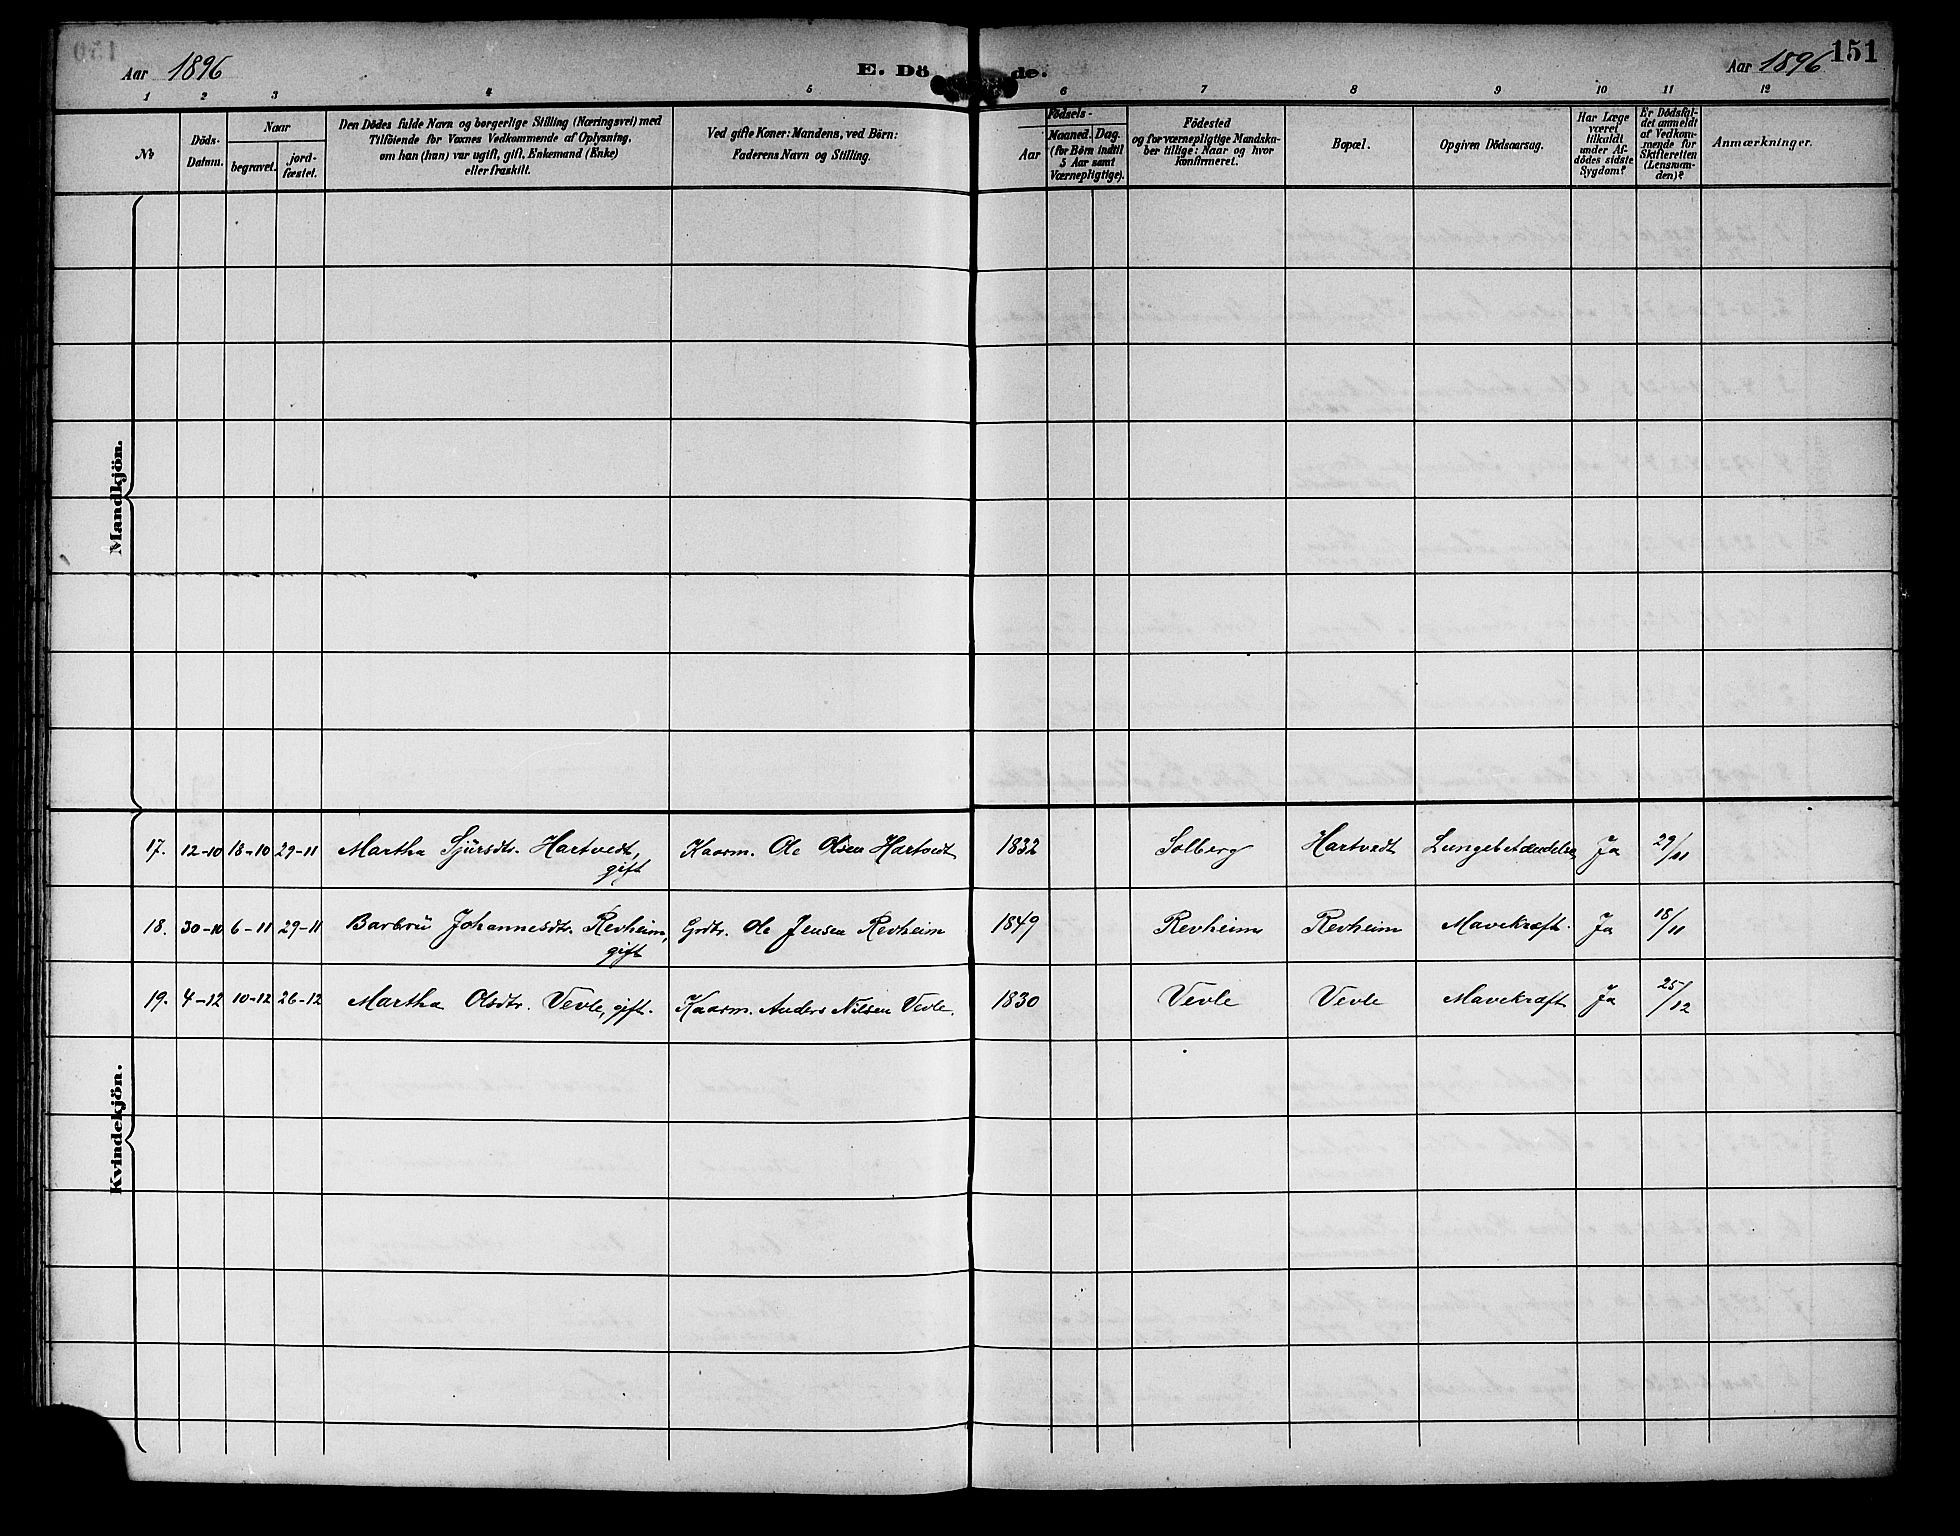 Aar 1896
E. Dö de.
Aar 1896
151
1 2 3 4 5 6 7 8 9 10 11 12
No
Döds-
Datum.
Naar
begravet.
jord-
fæstet.
Den Dödes fulde Navn og borgerlige Stilling (Næringsvei) med
Tilföiende for Voxnes Vedkommende af Oplysning,
om han (hun) var ugift, gift, Enkemand (Enke)
eller fraskilt.
Ved gifte Koner: Mandens, ved Börn:
Faderens Navn og Stilling.
Födsels-
Aar
Maaned. Dag.
(for Börn indtil
5 Aar samt
Værnepligtige).
Födested
og for værnepligtige Mandska-
ber tillige: Naar og hvor
konfirmeret.
Bopæl.
Opgiven Dödsaarsag.
Har Læge
været
tilkaldt
under Af-
dödes sidste
Sygdom?
Er Dödsfal-
det anmeldt
af Vedkom-
mende for
Skifteretten
(Lensman-
den)?
Anmærkninger.
Mandkjön.
17. 12-10 18-10 29-11 Martha Sjursdtr. Hartvedt, Kaarm. Ole Olsen Hartvedt 1832 Solberg Hartvedt Lungebetændelse Ja 29/11
gift
18. 30-10 6-11 29-11 Barbru Johannesdtr. Revheim, Grdbr. Ole Jensen Revheim 1849 Revheim Revheim Mavekræft. Ja 18/11
gift
19. 4-12 10-12 26-12 Martha Olsdtr. Vevle, gift. Kaarm. Anders Nilsen Vevle. 1830 Vevle Vevle Mavekræft Ja 25/12
Kvindekjön.